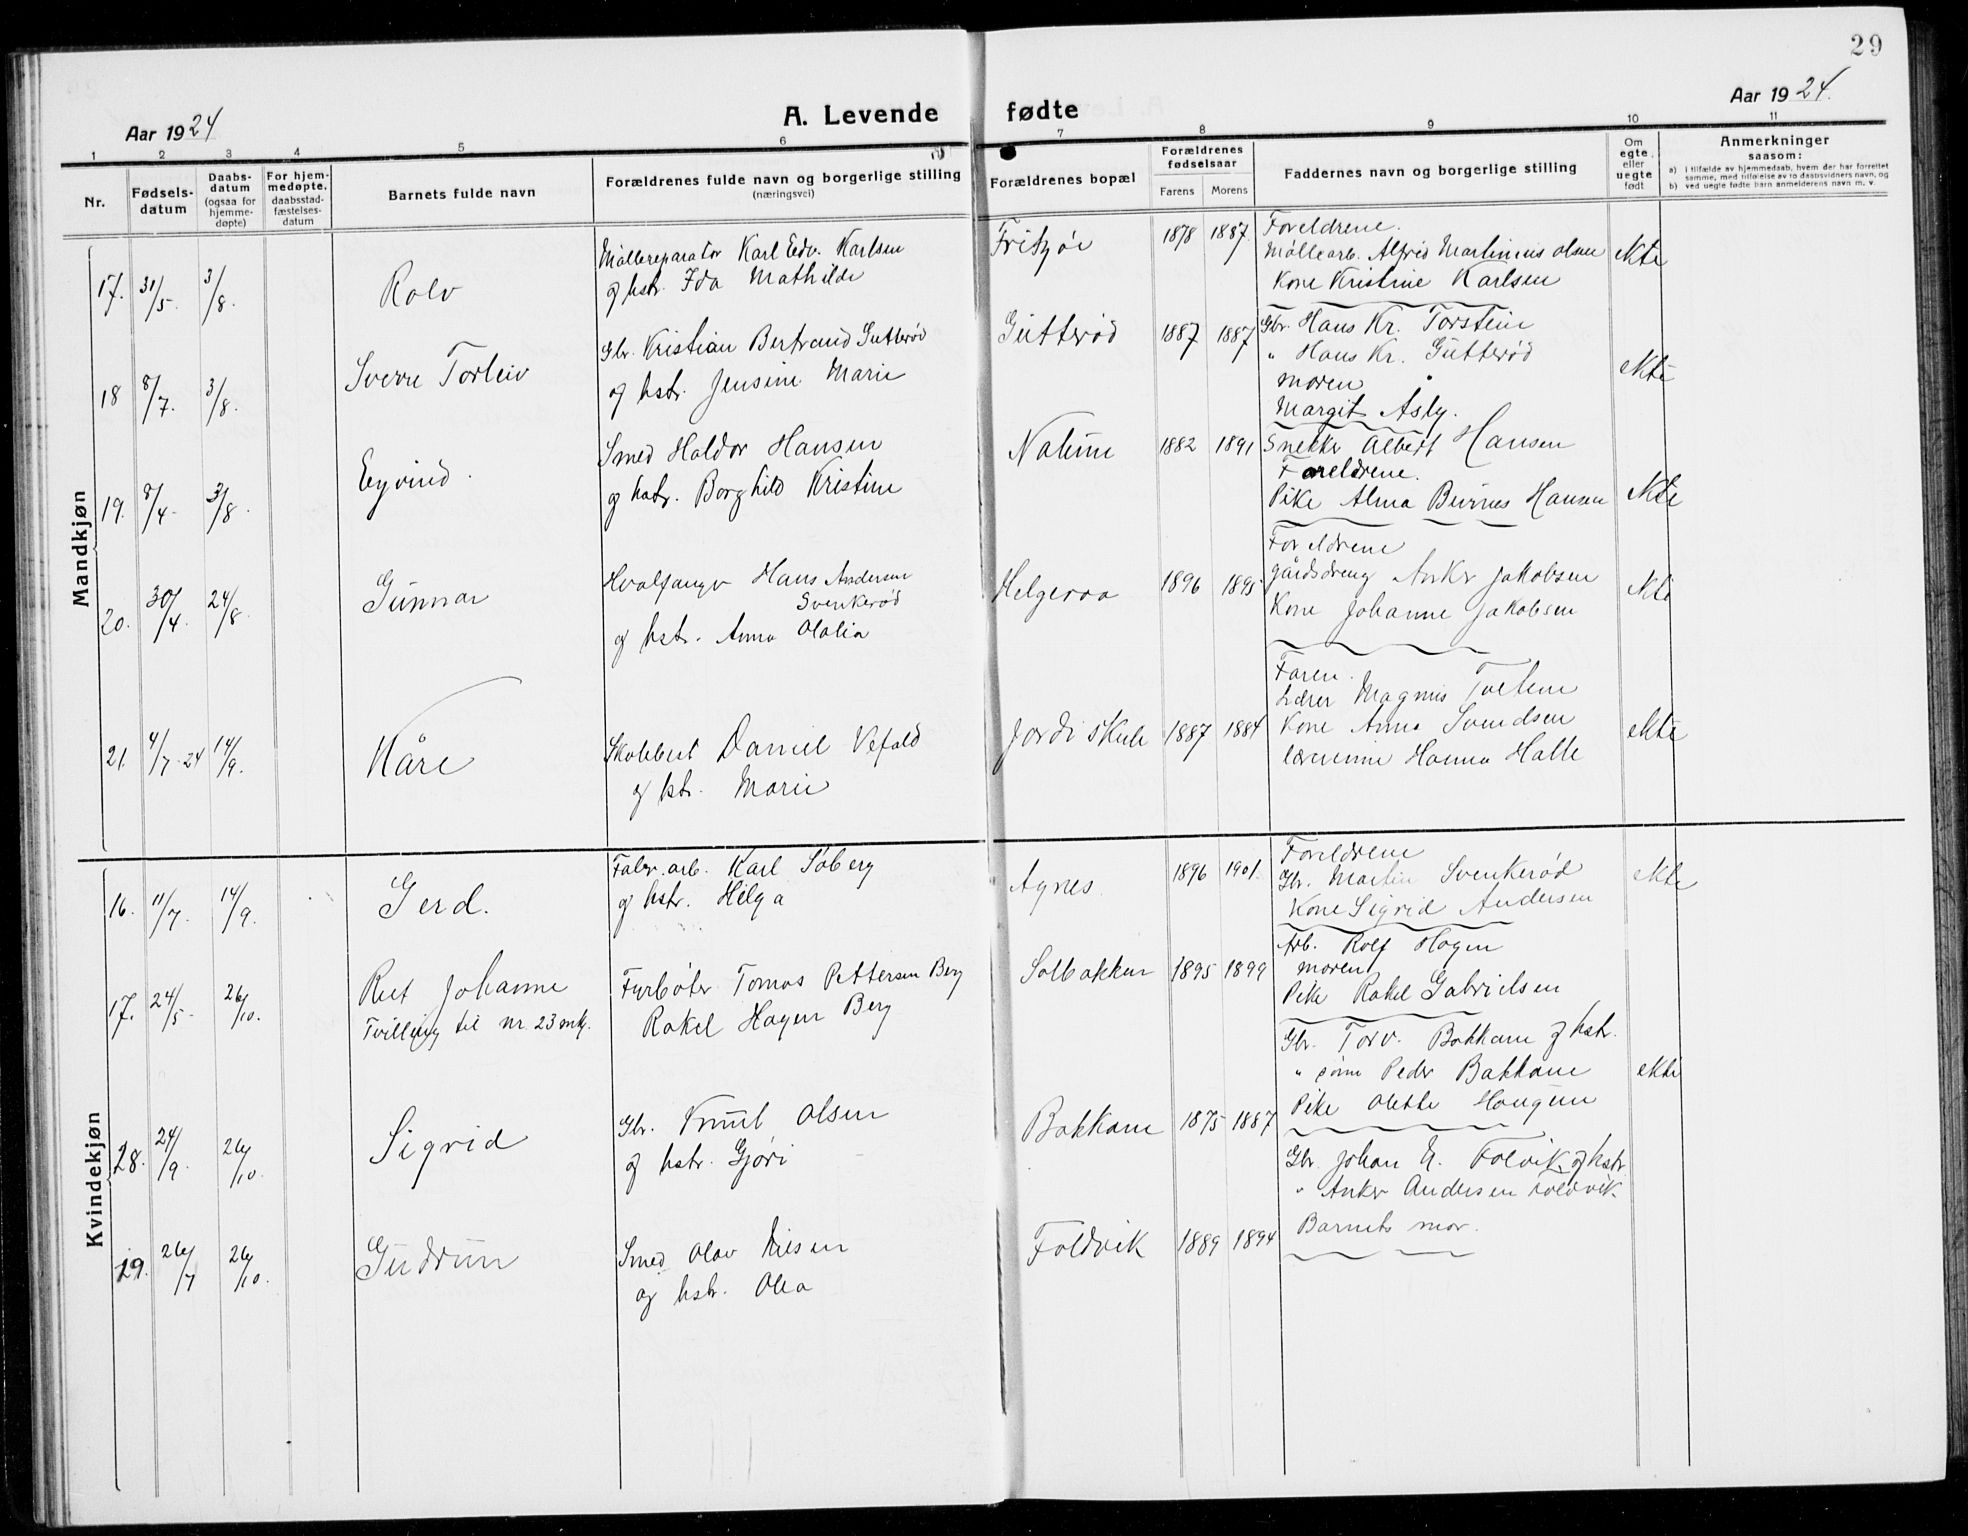 29
Aar 1924
A. Levende fødte
Aar 1924.
1 2 3 4 5 6 7 8 9 10 11
Nr.
Fødsels-
datum
Daabs-
datum
(ogsaa for
hjemme-
døpte)
For hjem-
medøpte,
daabsstad-
fæstelses-
datum
Barnets fulde navn
Forældrenes fulde navn og borgerlige stilling
(næringsvei)
Forældrenes bopæl
Forældrenes
fødselsaar
Farens Morens
Faddernes navn og borgerlige stilling
Om
egte
eller
uegte
født
Anmerkninger
saasom:
a) i tilfælde av hjemmedaab, hvem der har forrettet
samme, med tilføielse av to daabsvidners navn, og
b) ved uegte fødte barn anmelderens navn m. v.
Mandkjøn
17. 31/5. 3/8. Rolv
Møllereparatør Karl Edv. Karlsen
og hstr. Ida Mathilde
Fritzøe 1878 1887.
Foreldrene.
Møllearb. Alfred Martinius Olsen
Kone Kristine Karlsen
ekte
18 8/7. 3/8. Sverre Torleiv
Gbr. Kristian Bertrand Gutterød
og hstr. Jensine Marie
Gutterød 1887 1887
Gbr. Hans Kr. Torstein
" Hans Kr. Gutterød
moren
Margit Asly.
ekte
19. 8/4. 3/8. Eyvind.
Smed Haldor Hansen
og hstr. Borghild Kristine
Nalum 1882 1891
Snekker Albert Hansen
Foreldrene.
Pike Alma Hansen
ekte
20. 30/4. 24/8. Gunnar
Hvalfanger Hans Andersen
Svenkerød
og hstr. Anna Olalia
Helgeroa 1896 1895
Foreldrene
gårdsdreng Anker Jakobsen
Kone Johanne Jakobsen
ekte
21. 4/7-24 14/9. Kåre
Skolebest Daniel Vefald
og hstr. Marie
Jordi skule 1887 1884
Faren.
Lærer Magnus Tveten
Kone Anna Svendsen
lærerinne Hanna Halle
ekte
Kvindekjøn
16. 11/7. 14/9. Gerd.
Fabr. arb. Karl Søberg
og hstr. Helga
Agnes. 1896 1901.
Foreldrene
Gbr. Martin Svenkerød
Kone Sigrid Andersen
ekte
17. 24/5. 26/10. Rut Johanne
Tvilling til nr. 23 mkj.
Fyrbøter Tomas Pettersen Berg
Rakel Hagen Berg
Solbakken 1895 1899
Arb. Rolf Hagen
moren
Pike Rakel Gabrielsen
28. 24/9. 26/10. Sigrid
Gbr. Knut Olsen
og hstr. Gjøri
Bakkane 1875 1887
Gbr. Torv. Bakkane og hstr.
" sønn Peder Bakkane
Pike Olette Haugen
ekte
29. 26/7 26/10. Gudrun
Smed Olav Nilsen
og hstr. Olea
Foldvik 1889 1894
Gbr. Johan A. Folvik og hstr.
" Anker Andersen Foldvik
Barnets mor.